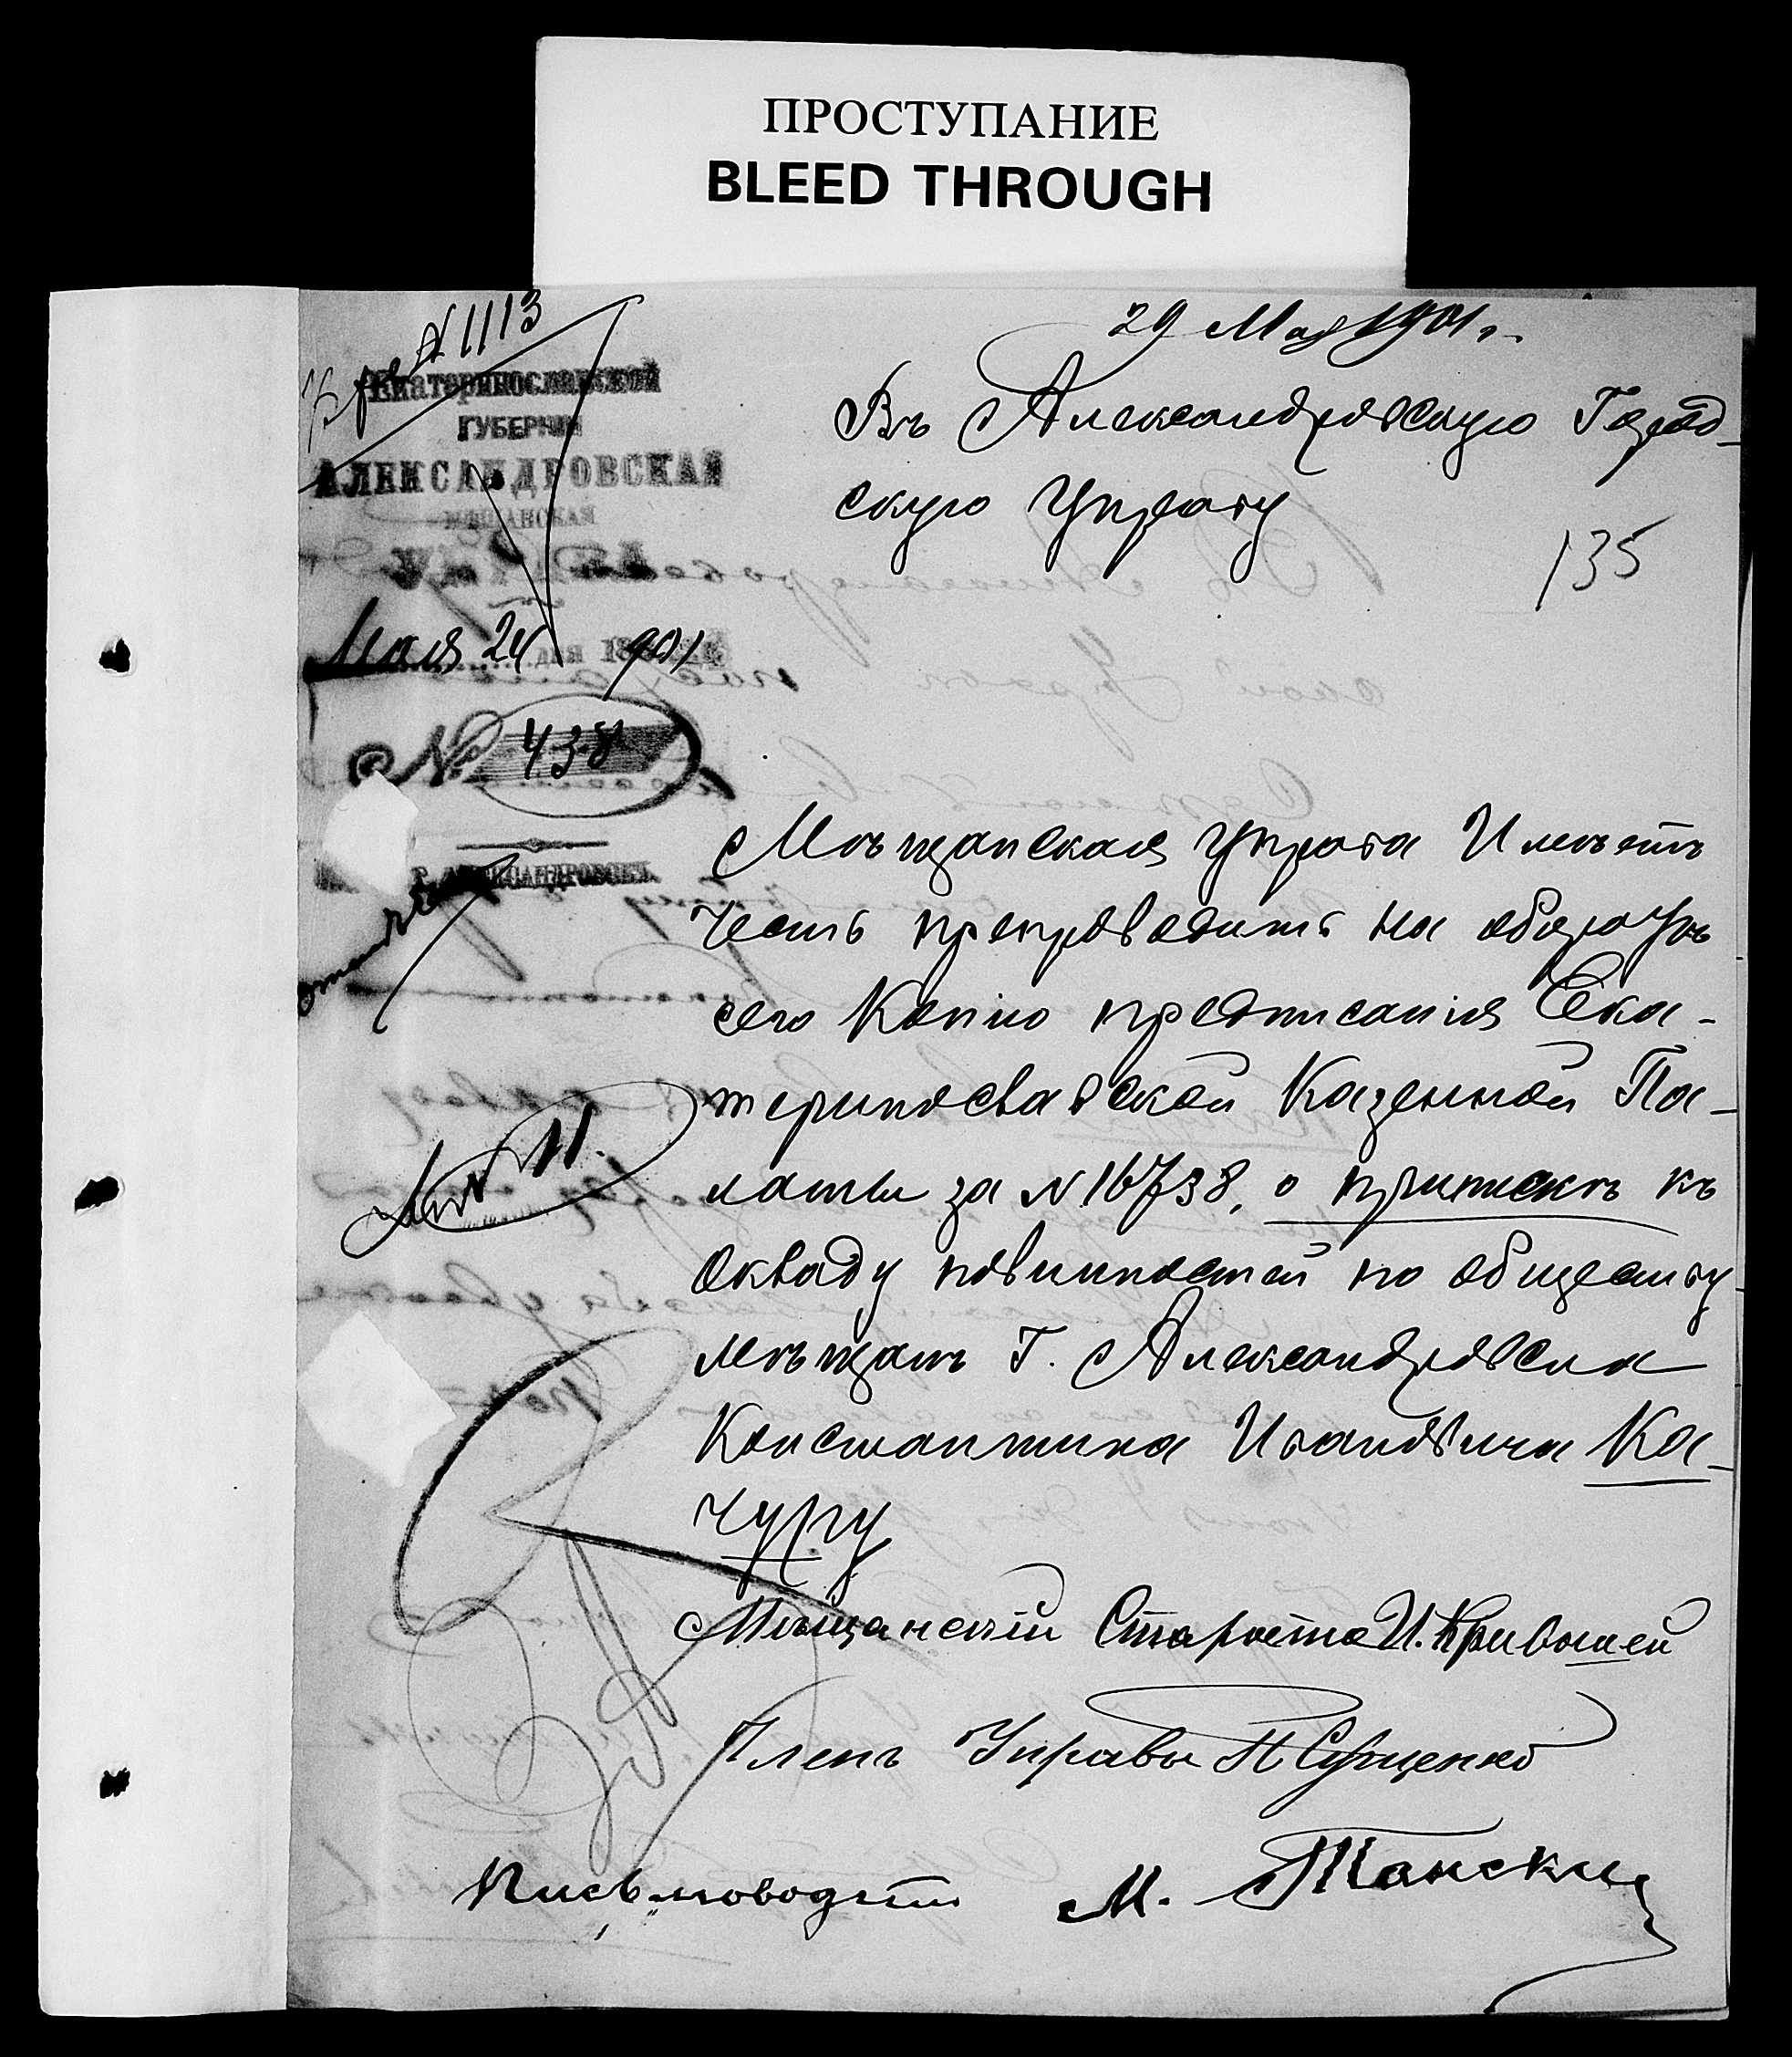 ПРОСТУПАНИЕ
BLEED THROUGH
29 Мая 1901 г.
№ 1113
Екатеринославской
ГУБЕРНИИ
АЛЕКСАНДРОВСКАЯ
МѢЩАНСКАЯ
Мая 24 дня 1901
№ 438
Г. АЛЕКСАНДРОВСКЪ.
Въ Александровскую Город-
скую Управу
135
Мѣщанская Управа Имѣетъ
честь препроводить на оборотѣ
сего Копію предписанія Ека-
теринославской Казенной Па-
латы за № 16738, о припискѣ къ
окладу повинностей по обществу
мѣщанъ Г. Александровска
Константина Ивановича Ка-
чуру
Мѣщанскій Староста И. Кривошей
Членъ Управы П Сущенко
Письмоводит М. Танскій